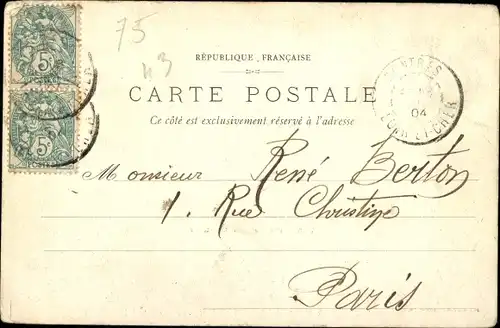 75
43
RÉPUBLIQUE FRANÇAISE
CARTE POSTALE
Ce côté est exclusivement réservé à l'adresse
5c
5c
04
LOIR-ET-CHER
Monsieur René Berton
1. Rue Christine
Paris